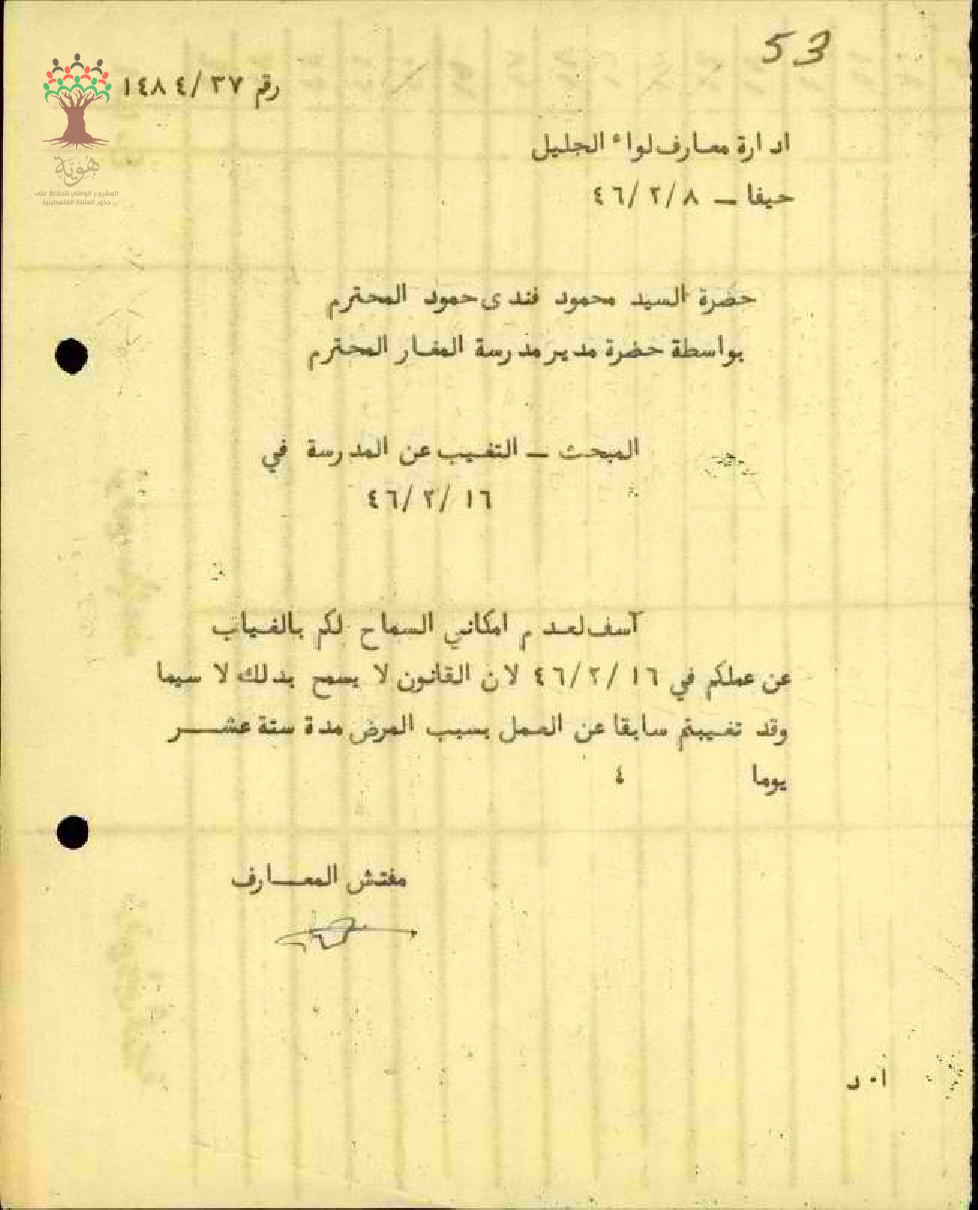 53
رقم ٣٧/ ١٤٨٤
ادارة معارف لواء الجليل
حيفا – ٤٦/٢/٨
حضرة السيد محمود فندى حمود المحترم
بواسطة حضرة مدير مدرسة المغار المحترم
المبحث – التغيب عن المدرسة في
٤٦/٢/١٦
آسف لعدم امكاني السماح لكم بالغياب
عن عملكم في ٤٦/٢/١٦ لان القانون لا يسمح بذلك لا سيما
وقد تغيبتم سابقا عن العمل بسبب المرض مدة ستة عشر
يوما ٤
مفتش المعارف
ا٠ د
هوية
المشروع الوطني للحفاظ على
جذور العائلة الفلسطينية